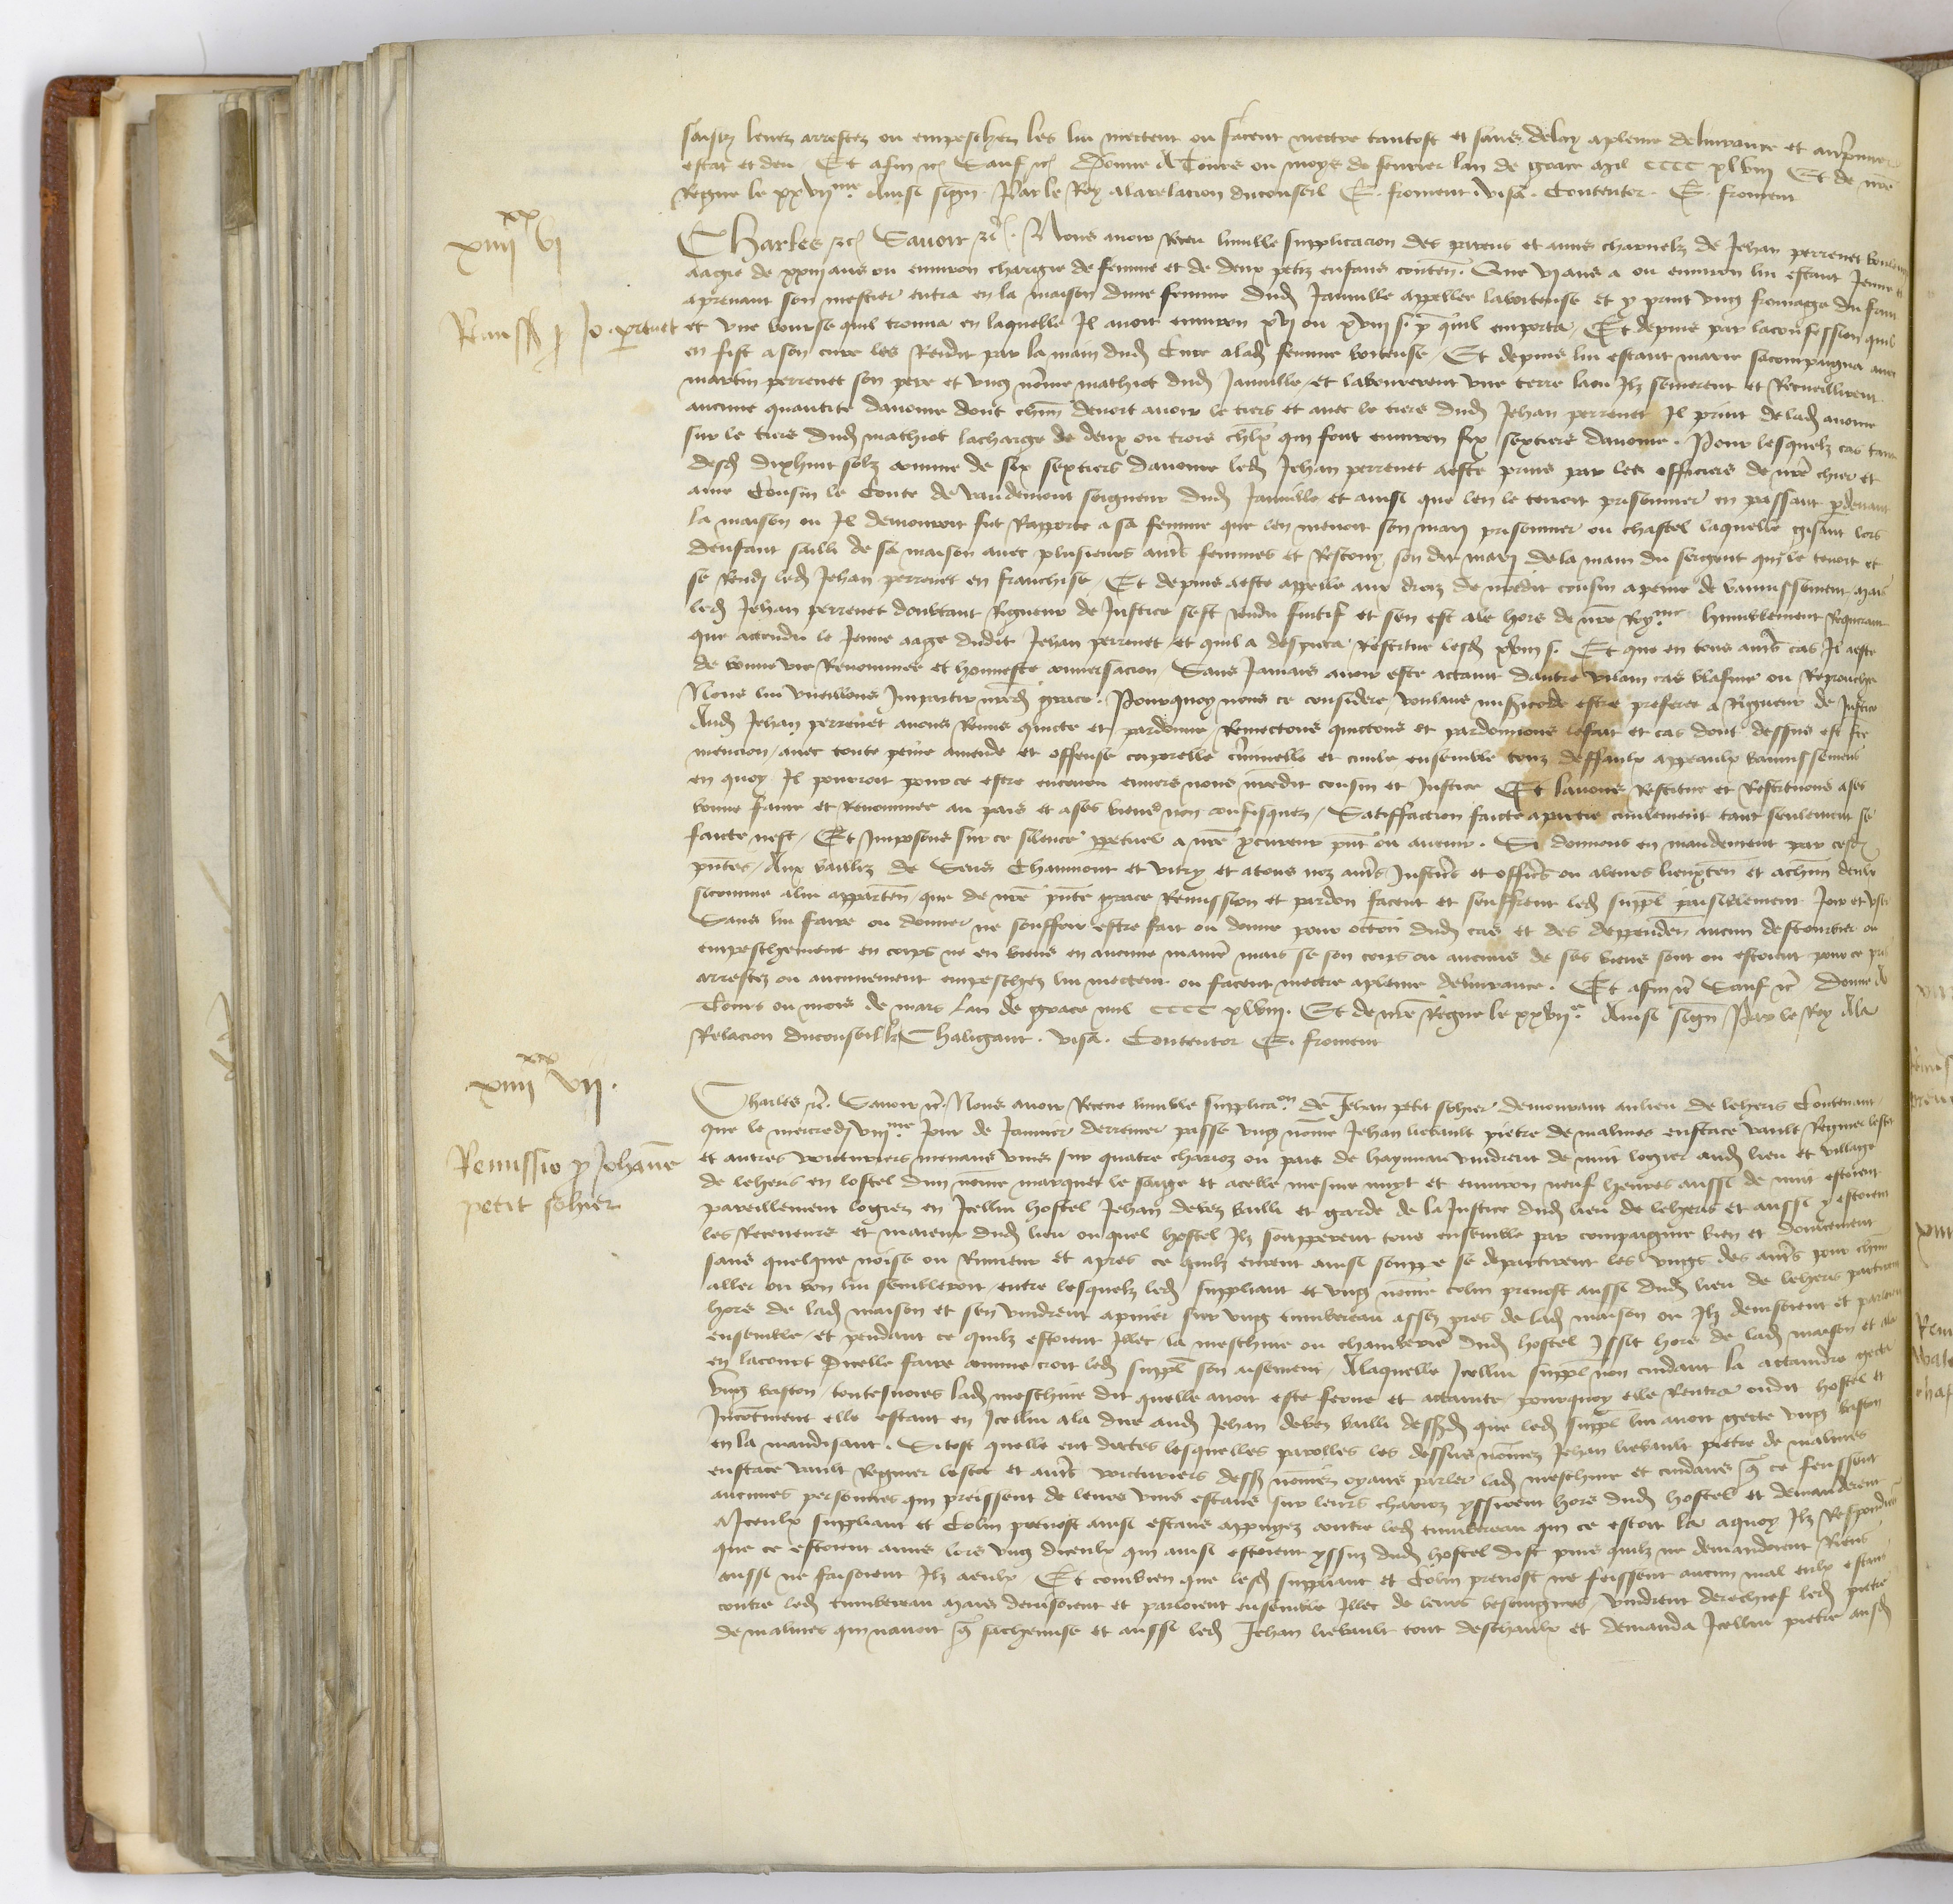 saisiz levez arrestez ou empeschez les lui mettent ou facent mettre tantost et sans delay a pleine delivrance et au premier
estat et deu. Et afin etc Sauf etc Donne A Tours ou moys de fevrier lan de grace mil CCCC xlviii Et de nre
Regne le xxvii me Ainsi sign. Par le Roy a la relacion du conseil E. froment visa. Contentor. E. froment
xiiii xx vi
Remissio pro Jo. perrenet
Charles etc Savoir etc. Nous avoir Receu lumble supplicacion des parens et amis charnelz de Jehan perrenet
aagie de xxiii ans ou environ chargie de femme et de deux petiz enfans conten. Que vi ans a ou environ lui estant Jenne
aprenant son mestier entra en la maison dune femme dud Janville appellee laboiteuse et y print ung fromage du
et une bourse quil trouva en laquelle Il avoit environ xvi ou xviii s. p quil emporta. Et depuis par la confession quil
en fist a son cure les Rendit par la main dud Cure a lad femme boiteuse. Et depuis lui estant marie sacompaigna avec
martin perrenet son pere et ung nomme mathiot dud Janville et labourerent une terre laou Ilz semerent et Recueillirent
aucune quantite davoine dont chun devoit avoir le tiers et avec le tiers dud Jehan perrenet Il print de lad avoine
sur le tiers dud mathiot la charge de deux ou trois chlx qui font environ six sextiers davoine. Pour lesquelz cas tant
desd dixhuit solz comme de six sextiers davoine led Jehan perrenet a este prins par les officiers de nre chier et
ame Cousin le Conte de Vaudemont seigneur dud Janville et ainsi que len le tenoit prisonnier en passant p devant
la maison ou Il demouroit fut Rapporte a sa femme que len menoit son mary prisonnier ou chastel laquelle gisant lors
denfant sailli de sa maison avec plusieurs autres femmes et Rescout son dit mary de la main du sergent qui le tenoit et
se rendy led Jehan perrenet en franchise. Et depuis a este appelle aux droiz de nredit cousin a peine de bannissement, mais
led Jehan perrenet doubtant Rigueur de Justice sest rendu fuitif et sen est ale hors de nre Roy me humblement Requerant
que attendu le Jenne aage dudit Jehan perrenet et quil a des pieca Restitue lesd xviii s. Et que en tous autres cas Il a este
de bonne vie Renommee et honneste conversacion Sans Jamais avoir este attaint dautre vilain cas blasme ou Reprouche
Nous lui vueillons Impartir nred grace. Pourquoy nous ce considere voulans misericorde estre preferee a Rigueur de Justice
Aud Jehan perrenet avons Remis quicte et pardonne Remectons quictons et pardonnons le fait et cas dont dessus est fte
mencion avec toute peine amende et offense corporelle criminelle et civile ensemble touz deffaulx appeaulx bannissemens
en quoy Il pourroit pour ce estre encouru envers nous nredit cousin et Justice Et lavons Restitue et Restituons a ses
bonne fame et Renommee au pais et a ses biens non confisquez, Satiffaction faicte a partie civilement tant seulement se
faicte nest, Et Imposons sur ce silence ppetuel a nre pcureur pnt ou avenir. Si donnons en mandement par cesd
pntes, Aux bailliz de Sens Chaumont et vitry et a tous noz autres Justic et offic ou a leurs lieuxten et a chun deulx
sicomme a lui appartendr que de nre pnte grace Remission et pardon facent et seuffrent led suppl paisiblement Joir et user
Sans lui faire ou donner ne souffrir estre fait ou donne pour occon dud cas et des deppenden aucun destourbier ou
empeschement en corps ne en biens en aucune maniere mais se son corps ou aucuns de ses biens sont ou estoient pour ce pris
arrestez ou aucunement empeschez lui mettent ou facent mettre a pleine delivrance. Et afin etc Sauf etc Donne A
Tours ou mois de mars Lan de grace mil CCCC xlviii. Et de nre Regne le xxvii e Ainsi sign Par le Roy A la
Relacion du conseil Chaligant. visa. Contentor E. froment
xiiii xx vii.
Remissio p Johanne
petit sohier
Charles etc. Savoir etc. Nous avoir Receue lumble supplicaon de Jehan petit sohier demourant au lieu de leheris Contenant
que le mercredy viii me Jour de Janvier derrenier passe ung nomme Jehan liebault pietre de malines eustace vault Regnier lestot
et autres voicturiers menans vins sur quatre charioz ou pais de haynnau vindrent de nuit logier aud lieu et village
de leheris en lostel dun nomme marquet le saige et a celle mesme nuyt et environ neuf heures aussi de nuit estoient
pareillement logiez en Icellui hostel Jehan devez bailli et garde de la Justice dud lieu de leheris et aussi y estoient
les Receveurs et maieur dud lieu ou quel hostel Ilz soupperent tous ensemble par compaignie bien et doucement
sans quelque noise ou Rumeur et apres ce quilz eurent ainsi souppe se departirent les ungs des autres pour chun
aller ou bon lui sembleroit, entre lesquelz led suppliant et ung nomme colin prevost aussi dud lieu de leheris partirent
hors de lad maison et sen vindrent apuier sur ung tumbereau assez pres de lad maison ou Ilz devisoient et parloient
ensemble, et pendant ce quilz estoient Illec la meschine ou chamberiere dud hostel Issit hors de lad maison et ala
en la court dicelle faire comme croit led suppl son aisement. A laquelle Icellui suppl non cuidant la attaindre gecta
ung baston, toutesvoies lad meschine dit quelle avoit este ferue et attainte pourquoy elle Rentra oudit hostel et
Incontinent elle estant en Icellui ala dire aud Jehan devez bailli dessusd que led suppl lui avoit gecte ung baston
en la maudisant. Si tost quelle eut dictes lesquelles parolles les dessus nommez Jehan liebault pietre de malines
eustace vault Regnier lestot et autres voicturiers dess nommez oyans parler lad meschine et cuidans que ce feussent
aucunes personnes qui preissent de leurs vins estans sur leurs charioz yssirent hors dud hostel et demanderent
a Iceulx suppliant et Colin prevost ainsi estans appuyez contre led tumbereau qui ce estoit la a quoy Ilz Respondirent
que ce estoient amis lors ung diceulx qui ainsi estoient yssuz dud hostel dist puis quilz ne demandoient Riens
aussi ne faisoient Ilz a eulx. Et combien que lesd suppliant et Colin prevost ne feissent aucun mal eulx estans
contre led tumbereau mais devisoient et parloient ensemble Illec de leurs besoingnes, vindrent derechief led pietre
de malines qui navoit que sa chemise et aussi led Jehan liebault tout deschaulx et demanda Icellui pietre ausd